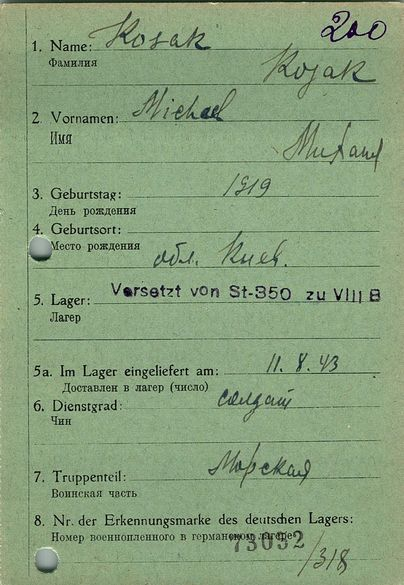 200
1. Name: Kosak
Фамилия
Kozak
2. Vornamen: Michael
Имя
Михаил
3. Geburtstag: 1919
День рождения
4. Geburtsort:
Место рождения
обл. Киев.
5. Lager: Versetzt von St-350 zu VIII B
Лагерь
5a. Im Lager eingeliefert am: 11. 8. 43
Доставлен в лагерь (число)
6. Dienstgrad: солдат
Чин
7. Truppenteil: Морская
Воинская часть
8. Nr. der Erkennungsmarke des deutschen Lagers:
Номер военнопленного в германском лагере
73032
/318